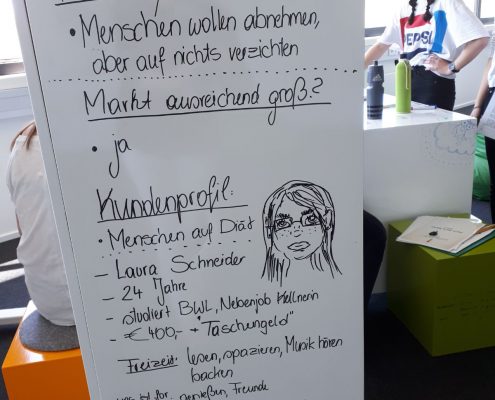 • Menschen wollen abnehmen,
aber auf nichts verzichten
Markt ausreichend groß?
• ja
Kundenprofil:
• Menschen auf Diät
– Laura Schneider
– 24 Jahre
– studiert BWL, Nebenjob Kellnerin
– € 400,- → "Taschengeld"
Freizeit: lesen, spazieren, Musik hören
backen
genießen, Freunde
PEPSI